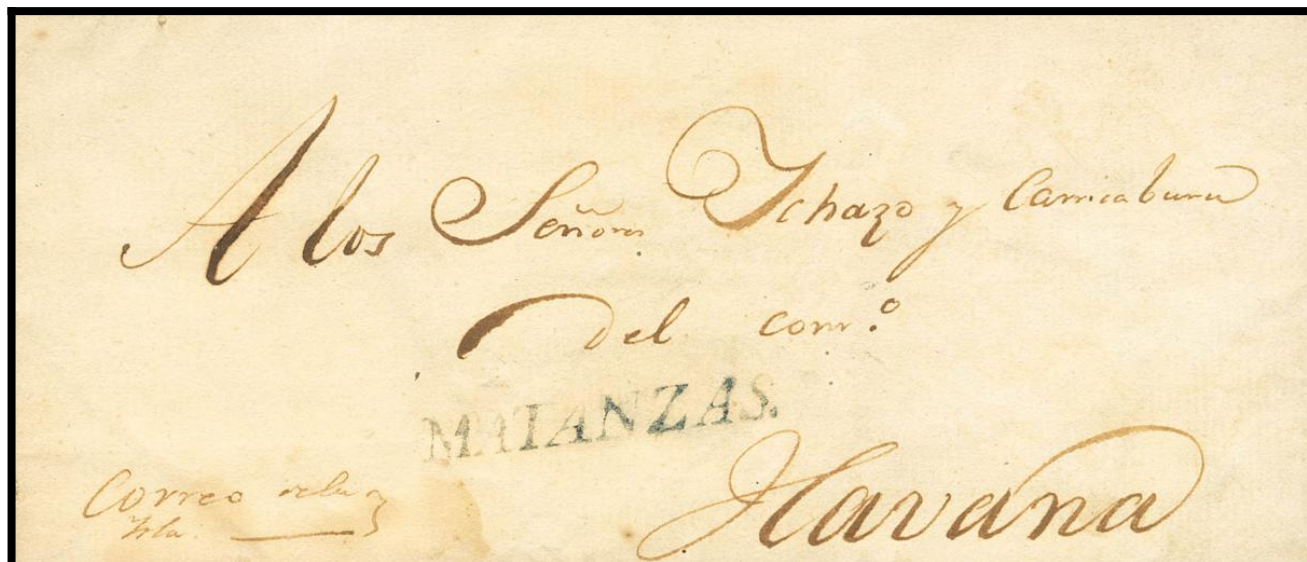 A los Señores Ychazo y Carricaburu
Del com.º
MATANZAS.
Havana
Correo de la
Ysla.